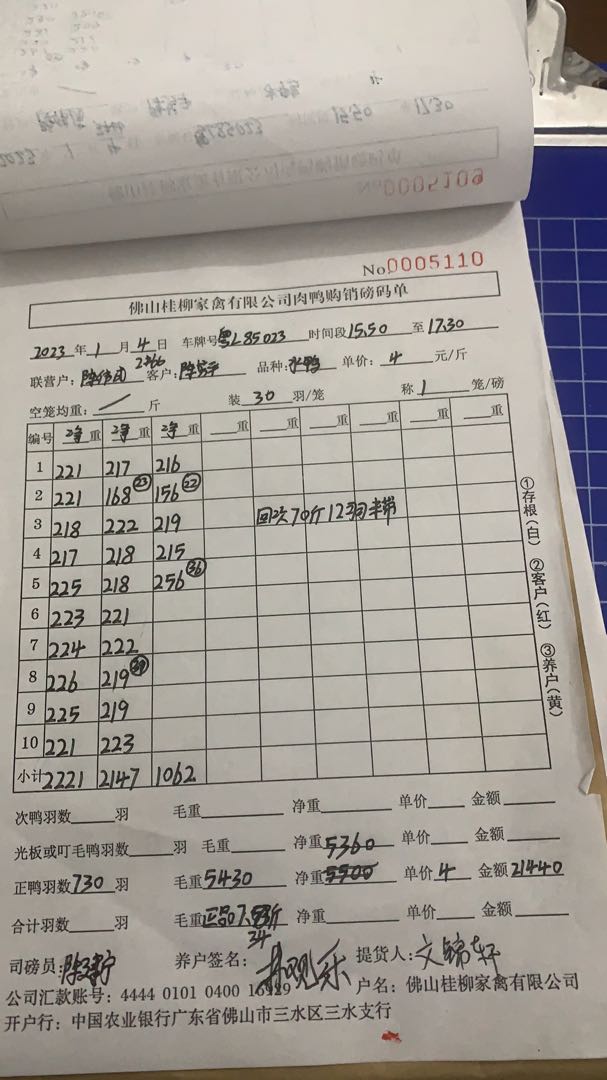 15.50 17.30
2023 1 4
No 0005109
No 0005110
佛山桂柳家禽有限公司肉鸭购销磅码单
2023 年 1 月 4 日 车牌号 粤L85023 时间段 15.50 至 17.30
联营户: 客户: 品种: 水鸭 单价: 4 元/斤
空笼均重: / 斤 装 30 羽/笼 称 1 笼/磅
编号 净 重 净 重 净 重 重 重 重 重 重 重
1 221 217 216
2 221 168 ㉓ 156 ㉒
3 218 222 219 回次70斤12羽
4 217 218 215
5 225 218 256 ㊱
6 223 221
7 224 222
8 226 219
9 225 219
10 221 223
小计 2221 2147 1062
次鸭羽数 羽 毛重 净重 单价 金额
光板或叮毛鸭羽数 羽 毛重 净重 5360 单价 金额
正鸭羽数 730 羽 毛重 5430 净重 5500 单价 4 金额 21440
合计羽数 羽 毛重 正品7. 斤 净重 单价 金额
34
司磅员: 养户签名: 提货人: 文锦轩
公司汇款账号: 4444 0101 0400 户名: 佛山桂柳家禽有限公司
开户行: 中国农业银行广东省佛山市三水区三水支行
①存根(白) ②客户(红) ③养户(黄)